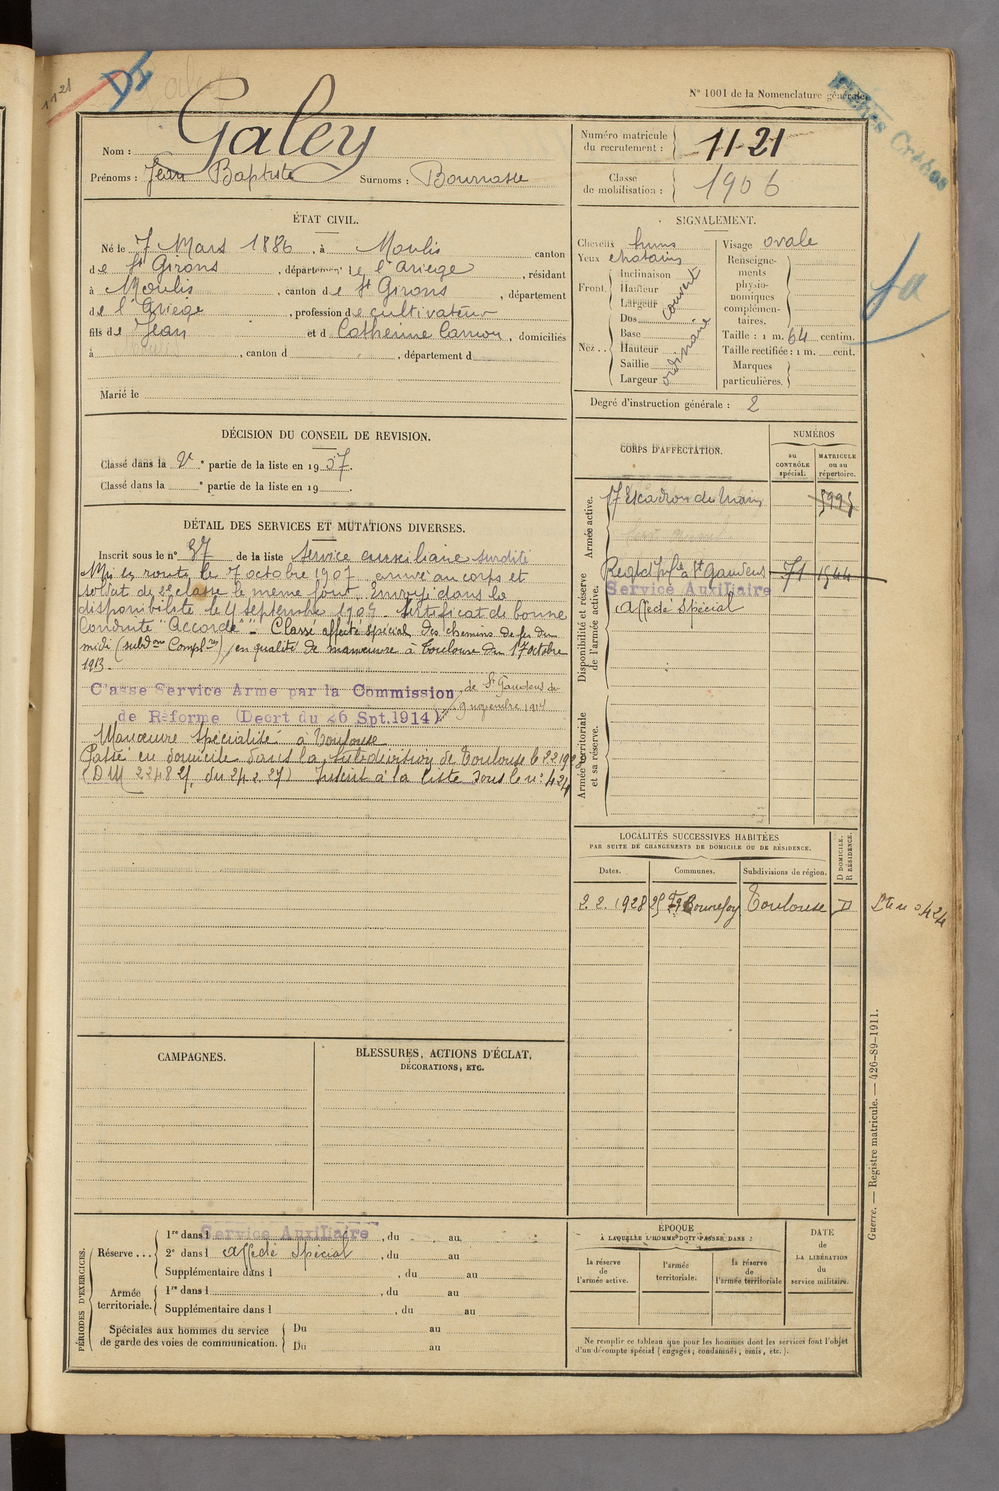 1121
DI
N° 1001 de la Nomenclature générale.
Fiches Créées
Nom : Galey
Prénoms : Jean Baptiste Surnoms : Bournasse
Numéro matricule du recrutement : 1121
Classe de mobilisation : 1906
ÉTAT CIVIL.
Né le 7 Mars 1886, à Moulis canton
de St Girons, département de l'Ariège, résidant
à Moulis, canton de St Girons, département
de l'Ariège, profession de cultivateur
fils de Jean et d Catherine Camou, domiciliés
à , canton d , département d
Marié le
SIGNALEMENT.
Cheveux bruns
Yeux chatains
Front. Inclinaison
Hauteur
Largeur
couvert
Nez. Dos
Base
Hauteur
Saillie
Largeur
ordinaire
Visage ovale
Renseignements physionomiques complémentaires.
Taille : 1 m. 64 centim.
Taille rectifiée : 1 m. cent.
Marques particulières.
Degré d'instruction générale : 2
DÉCISION DU CONSEIL DE REVISION.
Classé dans la 2e partie de la liste en 1907.
Classé dans la e partie de la liste en 19 .
DÉTAIL DES SERVICES ET MUTATIONS DIVERSES.
Inscrit sous le n° 37 de la liste Service auxiliaire surdité
Mis en route le 7 octobre 1907 arrivé au corps et
soldat de 2e classe le même jour. Envoyé dans la
disponibilité le 4 septembre 1909. Certificat de bonne
Conduite "Accordé". Classé affecté spécial des chemins de fer du
midi (subdon Complre) en qualité de manœuvre à Toulouse du 17 octobre
1913.
Classe Service Arme par la Commission de St Gaudens du
de Réforme (Decrt du 26 Spt. 1914) 9 novembre 1914
Manœuvre spécialisé à Toulouse
Passé en domicile dans la subdivision de Toulouse le 2 2 1928
(DM 2248 du 24 2 27) Inscrit à la liste sous le n° 424
CORPS D'AFFECTATION.
NUMÉROS
au CONTRÔLE spécial.
MATRICULE ou au répertoire.
Armée active.
17 Escadron du train 5995
Disponibilité et réserve de l'armée active.
Regt d'Infie à St Gaudens 71 1544
Service Auxiliaire
Affecté Spécial
Armée territoriale et sa réserve.
LOCALITÉS SUCCESSIVES HABITÉES
PAR SUITE DE CHANGEMENTS DE DOMICILE OU DE RÉSIDENCE.
Dates. Communes. Subdivisions de région. D DOMICILE. R RÉSIDENCE.
2.2.1928 25 Fg Bonnefoy Toulouse D
Lte n° 424
CAMPAGNES.
BLESSURES, ACTIONS D'ÉCLAT,
DÉCORATIONS, ETC.
PÉRIODES D'EXERCICES.
Réserve... 1re dans l Service Auxiliaire, du au
2e dans l Affecté Spécial, du au
Supplémentaire dans l , du au
Armée territoriale. 1re dans l , du au
Supplémentaire dans l , du au
Spéciales aux hommes du service de garde des voies de communication. Du au
Du au
ÉPOQUE
À LAQUELLE L'HOMME DOIT PASSER DANS :
la réserve de l'armée active.
l'armée territoriale.
la réserve de l'armée territoriale
DATE de LA LIBÉRATION du service militaire.
Ne remplir ce tableau que pour les hommes dont les services font l'objet
d'un décompte spécial (engagés, condamnés, omis, etc.).
Guerre. — Registre matricule. — 426-89-1911.